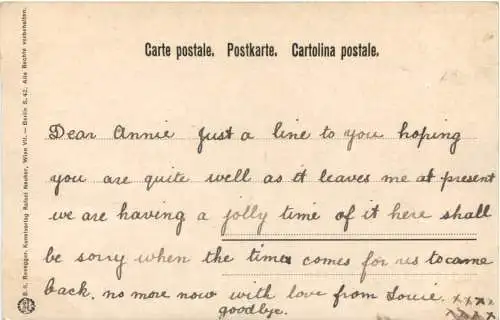 Carte postale. Postkarte. Cartolina postale.
Dear Annie Just a line to you hoping
you are quite well as it leaves me at present
we are having a jolly time of it here shall
be sorry when the times comes for us to came
back. no more now with love from Louie. xxxx
goodbye. xxxx
Wien VII. — Berlin S. 42. Alle Rechte vorbehalten.